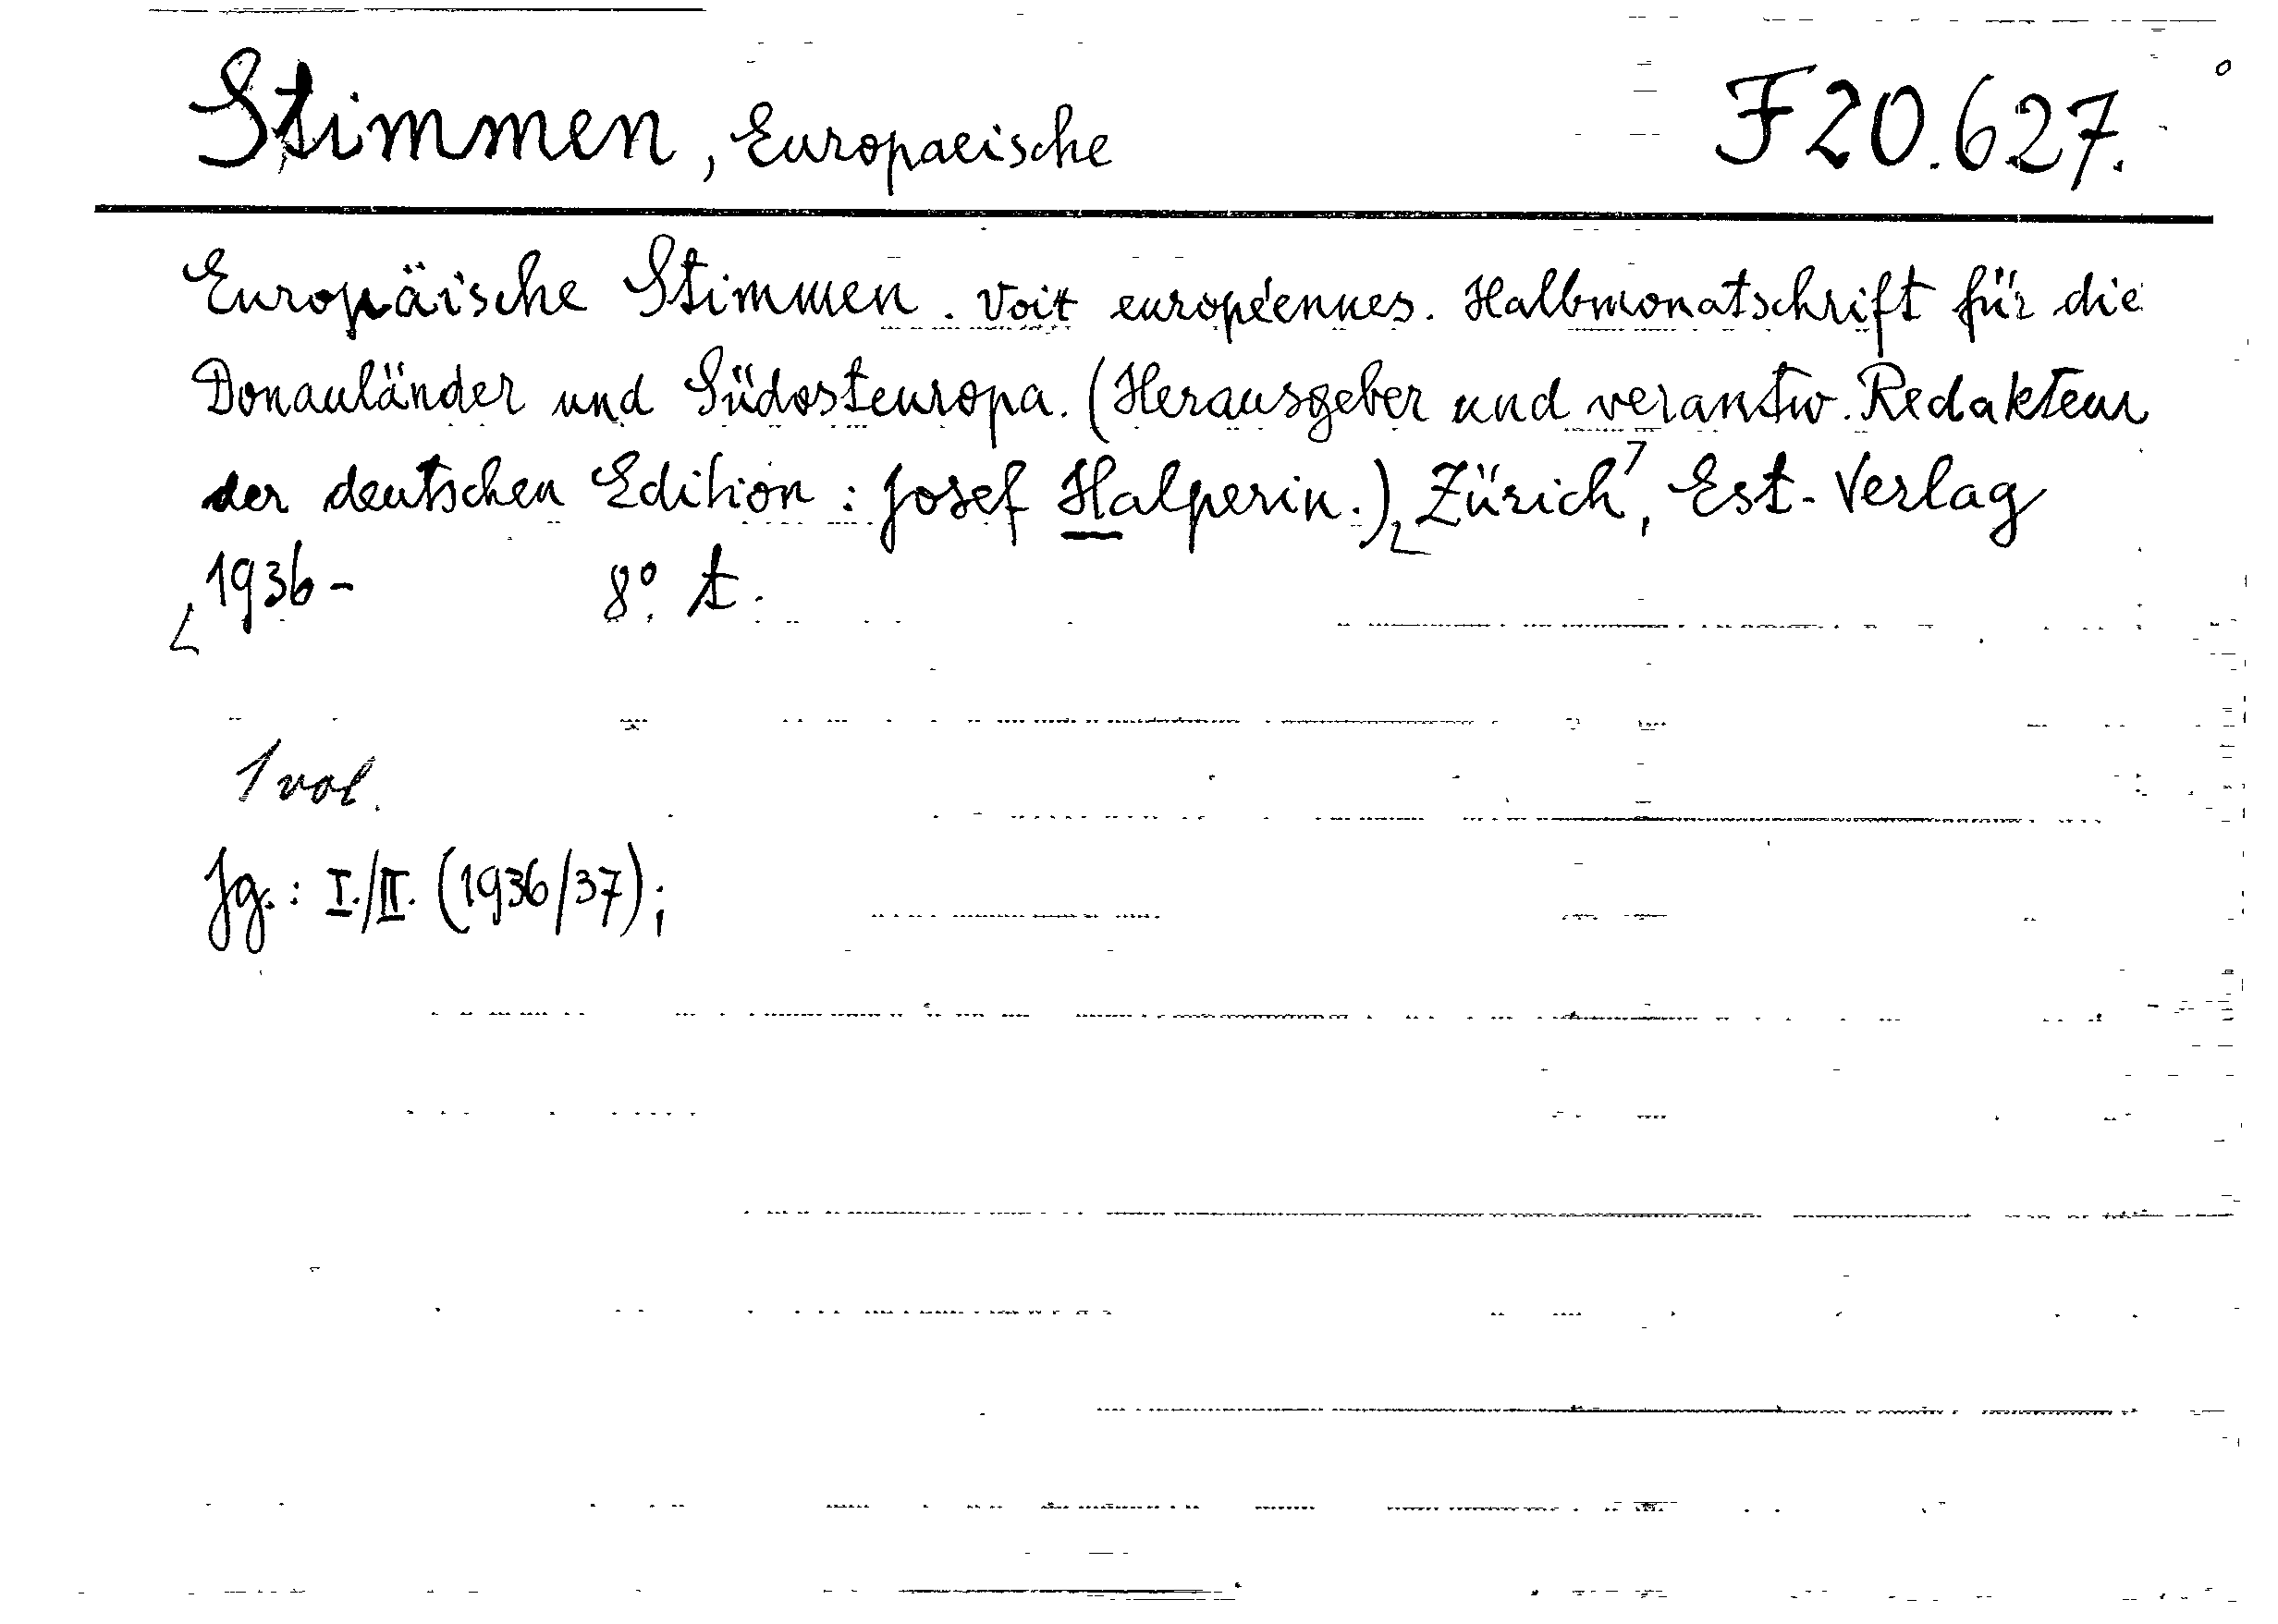 Stimmen, Europaeische F 20.627.
Europäische Stimmen. Voix européennes. Halbmonatschrift für die
Donauländer und Südosteuropa. (Herausgeber und verantw. Redakteur
der deutschen Edition: Josef Halperin.) Zürich, Est-Verlag
1936- 8°. t.
1 vol.
Jg.: I./II. (1936/37);